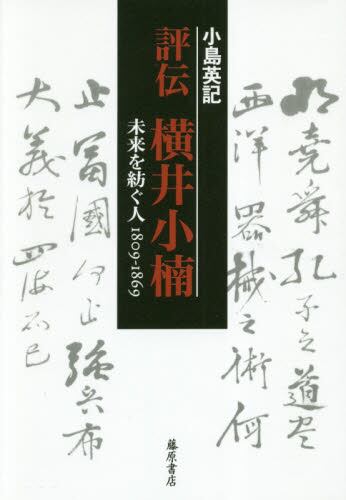 小島英記
評伝 横井小楠
未来を紡ぐ人 1809-1869
明堯舜孔子之道尽
西洋器械之術何
止富國何止強兵布
大義於四海而已
藤原書店